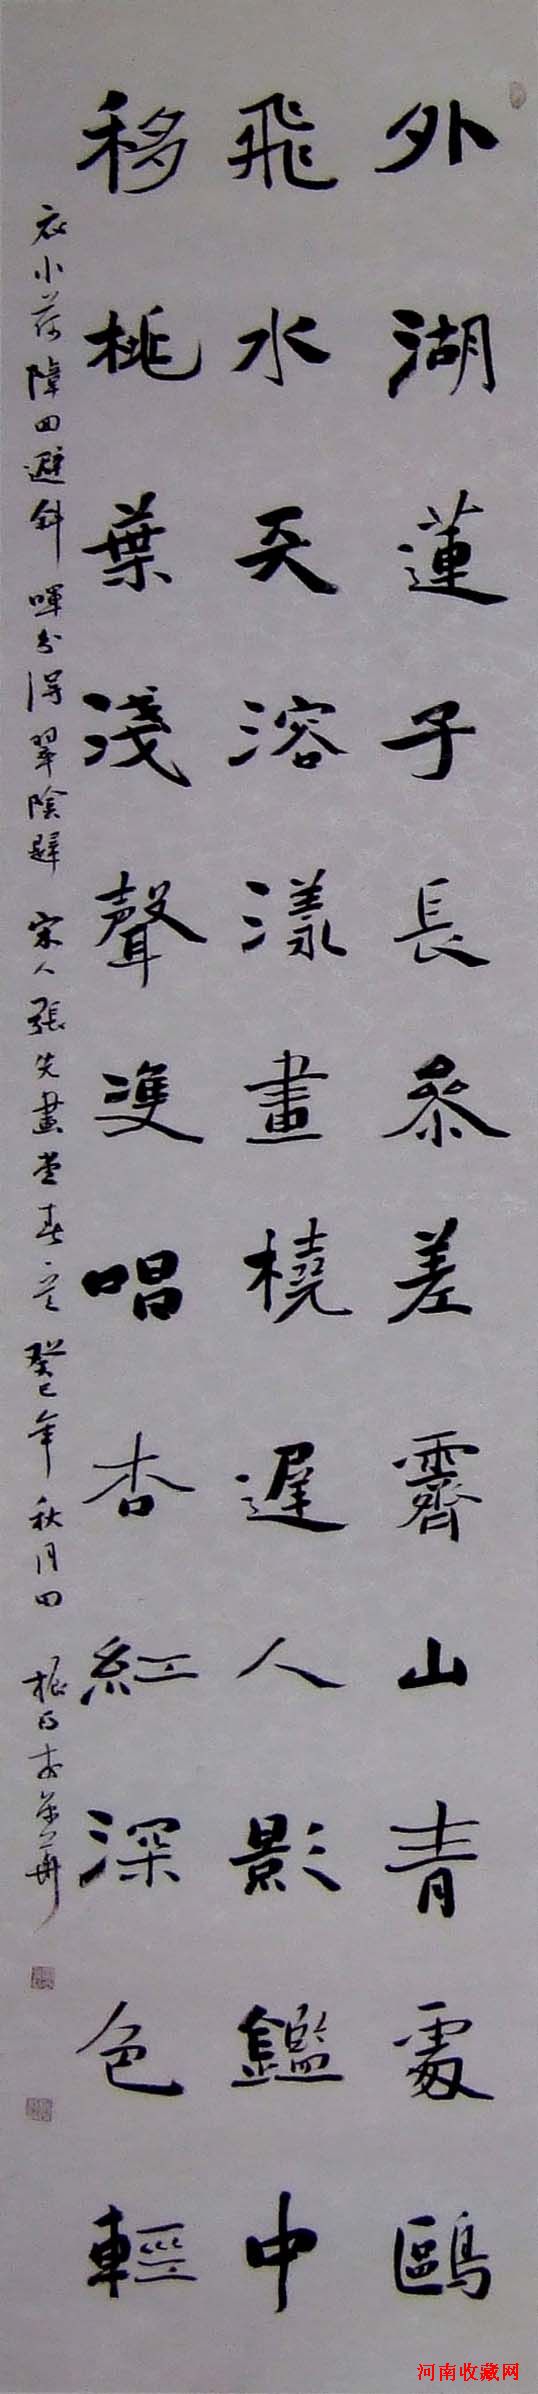 外湖蓮子長參差霽山青處鷗
飛水天溶漾畫橈遲人影鑑中
移桃葉淺聲雙唱杏紅深色輕
衣小荷障面避斜暉分得翠陰歸 宋人張先畫堂春一首 癸巳年秋月田振
河南收藏网